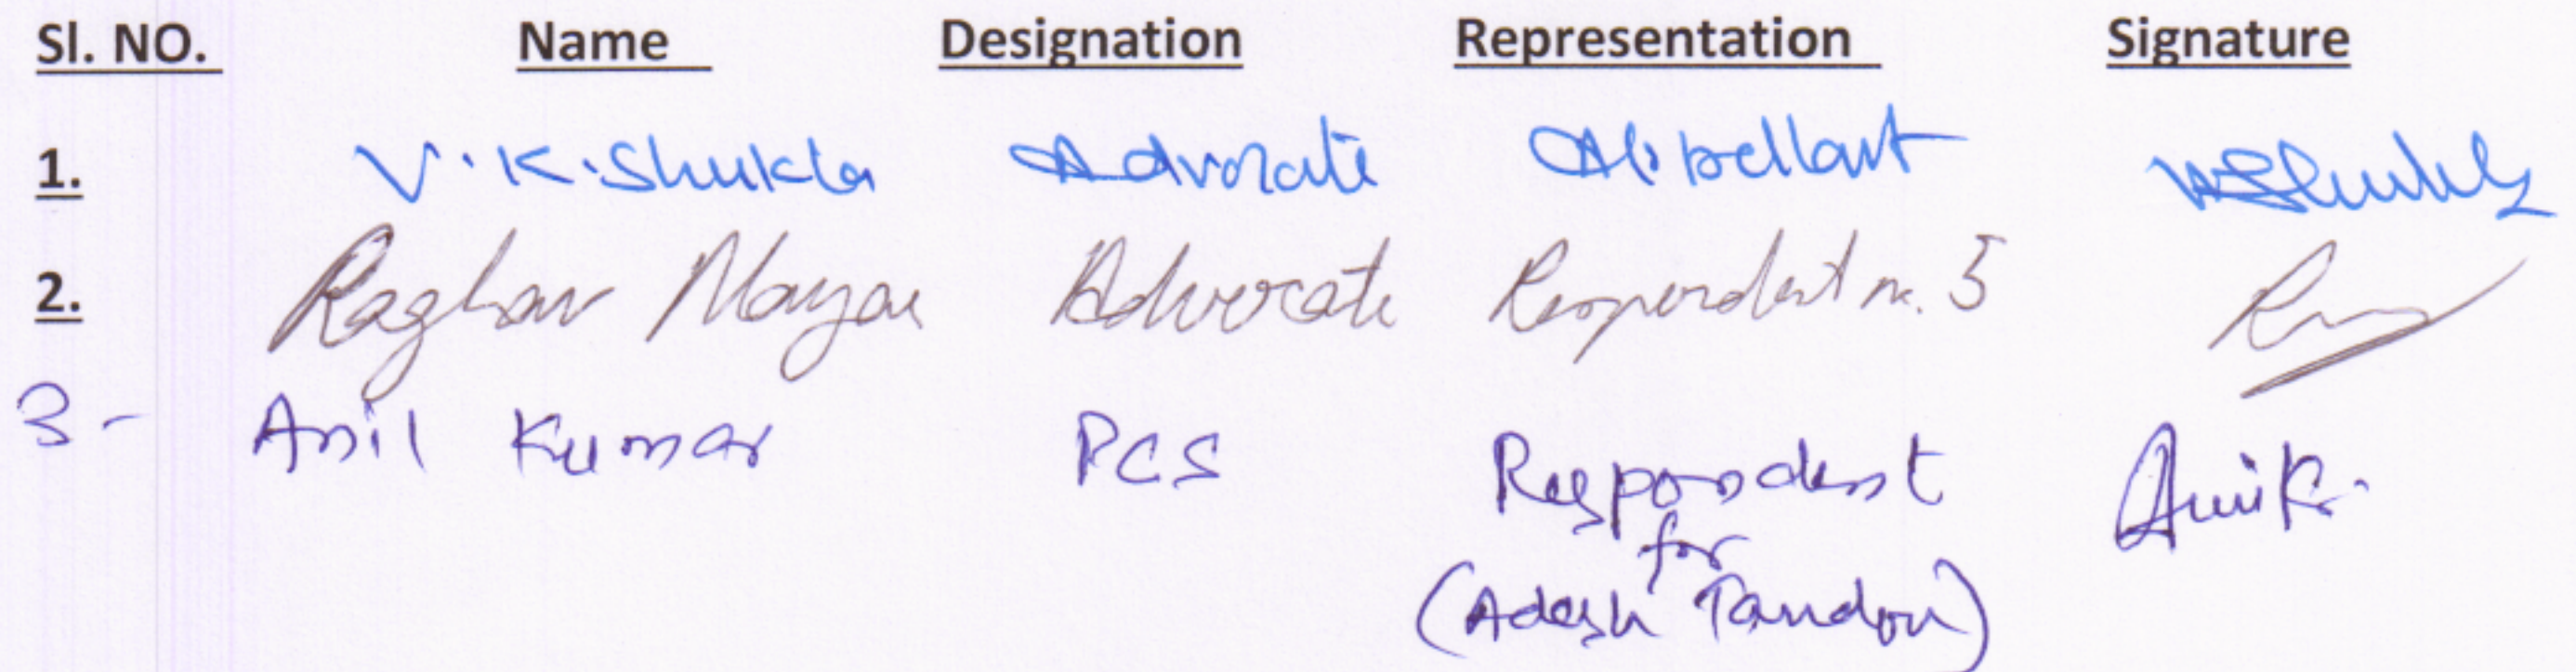 Sl. NO. Name Designation Representation Signature
1. V. K. Shukla Advocate Appellant VKShukla
2. Raghav Nayar Advocate Respondent no. 5
3- Anil Kumar PCS Respondent
for
(Adesh Tandon)